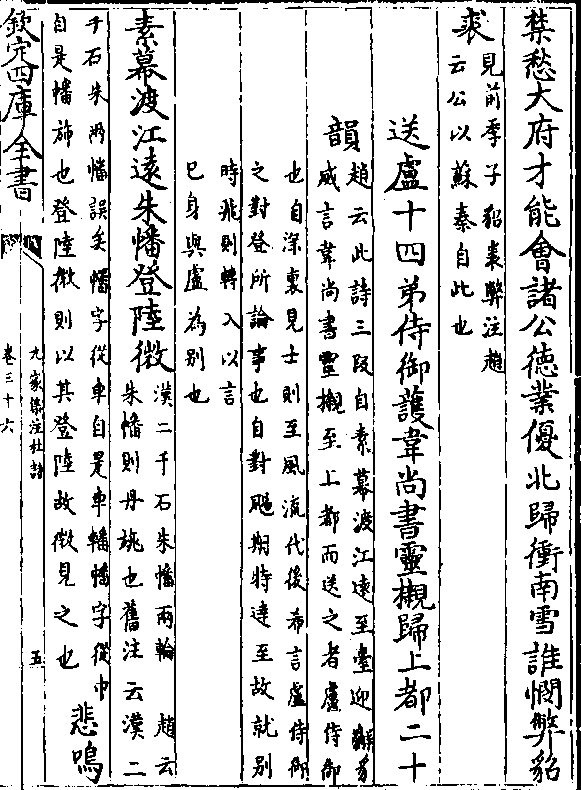 禁愁大府才能會諸公徳業優北歸衝南雪誰憫弊貂
裘見前季子貂裘弊注趙
云公以蘇秦自比也
送盧十四弟侍御護韋尚書靈櫬歸上都二十
韻趙云此詩三段自素幕渡江逺至臺迎獬豸
威言韋尚書靈櫬至上都而送之者盧侍御
也自深衷見士則至風流代後希言盧侍御
之對登所論事也自對颺期特達至故就别
時兆則轉入以言
已身與盧為别也
素幕渡江逺朱幡登陸微漢二千石朱幡兩輪　趙云
朱幡則丹旐也舊注云漢二
千石朱兩幡誤矣幡字從車自是車轓幡字從巾
自是幡斾也登陸微則以其登陸故微見之也悲鳴
欽定四庫全書
九家集注杜詩
卷三十六
五